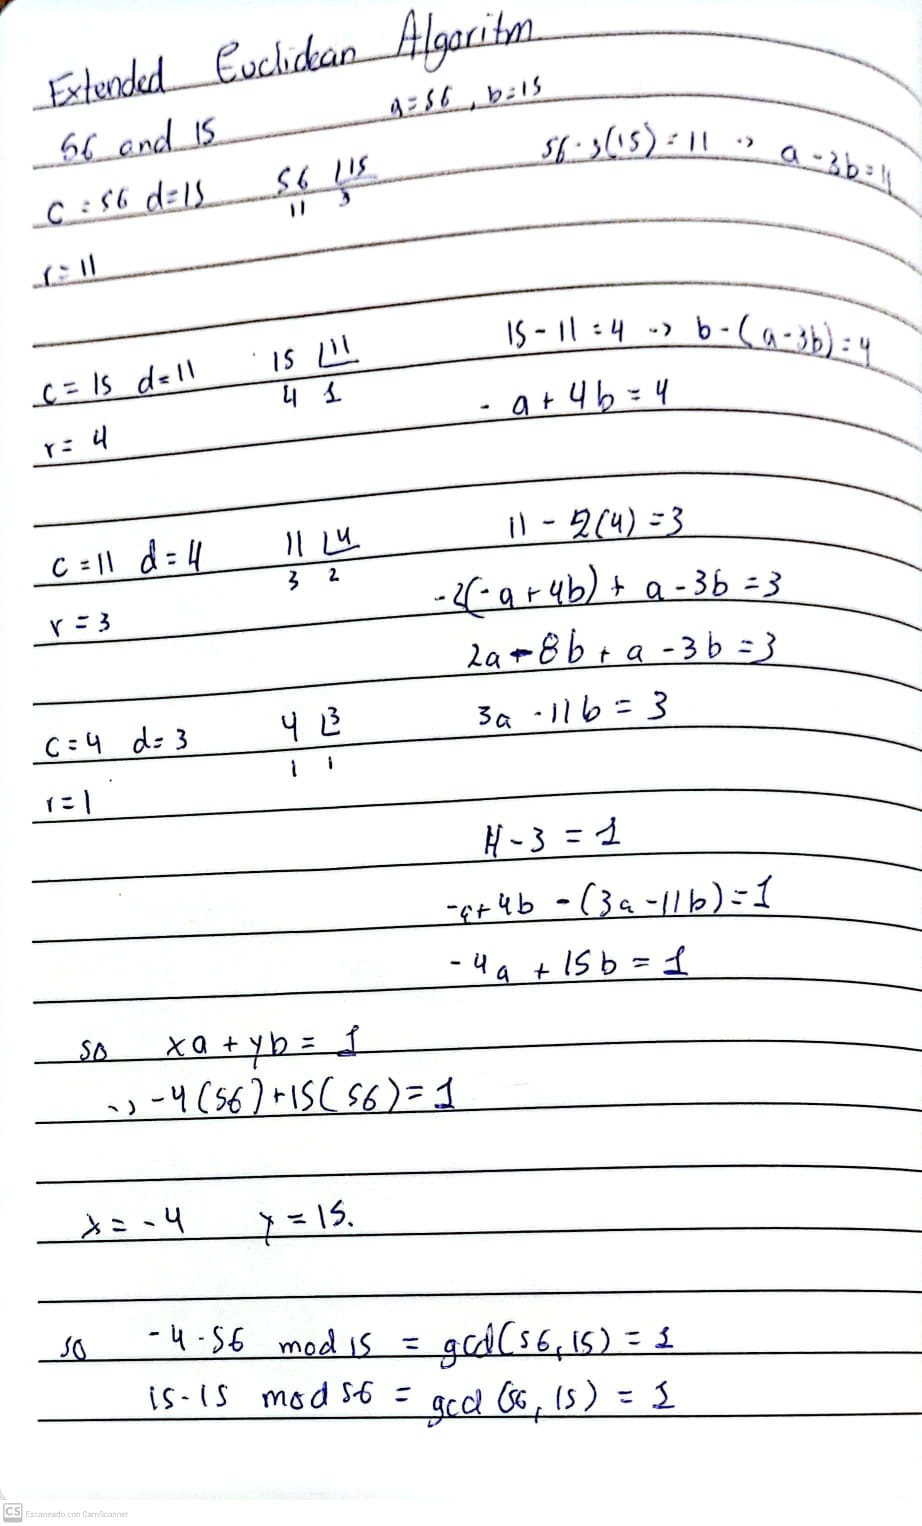 Extended Euclidean Algoritm
56 and 15 a=56, b=15
c=56 d=15 56 15 56-3(15)=11 -> a-3b=11
11 3
r=11
c=15 d=11 15 11 15-11=4 -> b-(a-3b)=4
4 1 -a+4b=4
r=4
c=11 d=4 11 4 11-2(4)=3
3 2
r=3 -2(-a+4b)+a-3b=3
2a-8b+a-3b=3
c=4 d=3 4 3 3a-11b=3
1 1
r=1
4-3=1
-a+4b-(3a-11b)=1
-4a+15b=1
so xa+yb=1
-> -4(56)+15(56)=1
x=-4 y=15.
so -4·56 mod 15 = gcd(56,15)=1
15-15 mod 56 = gcd(56,15)=1
CS Escaneado con CamScanner